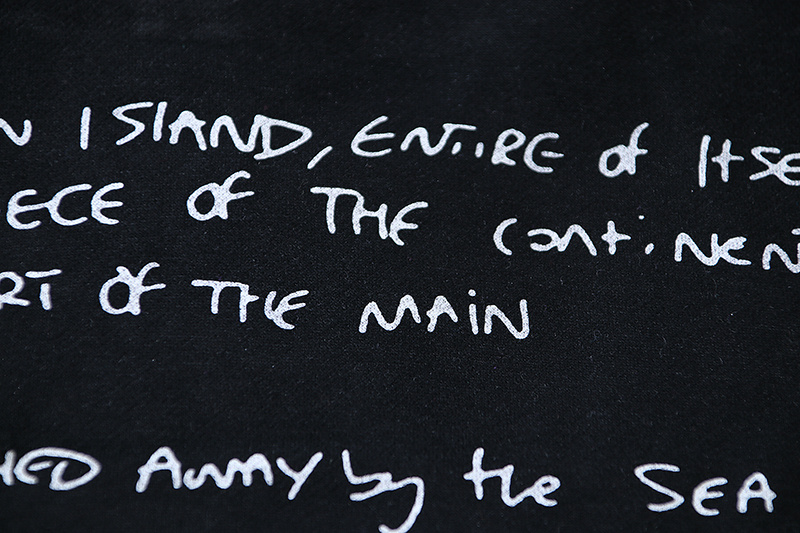 N ISLAND, ENTIRE of ITSE
ECE OF THE CONTINENT
RT OF THE MAIN
HED AWAY by the SEA